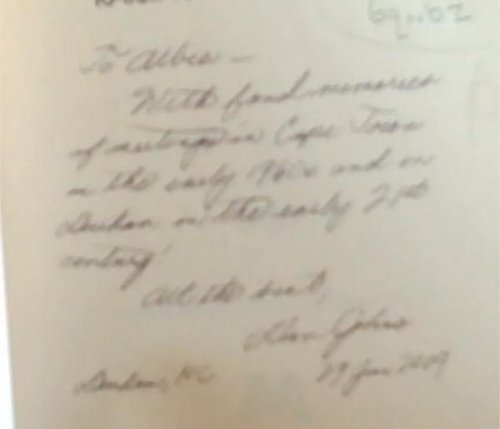 To Albie –
With fond memories
of meetings in Cape Town
in the early 1960s and in
Durham in the early 21st
century!
All the best,
Johns
Durham, NC
29 Jan 2009